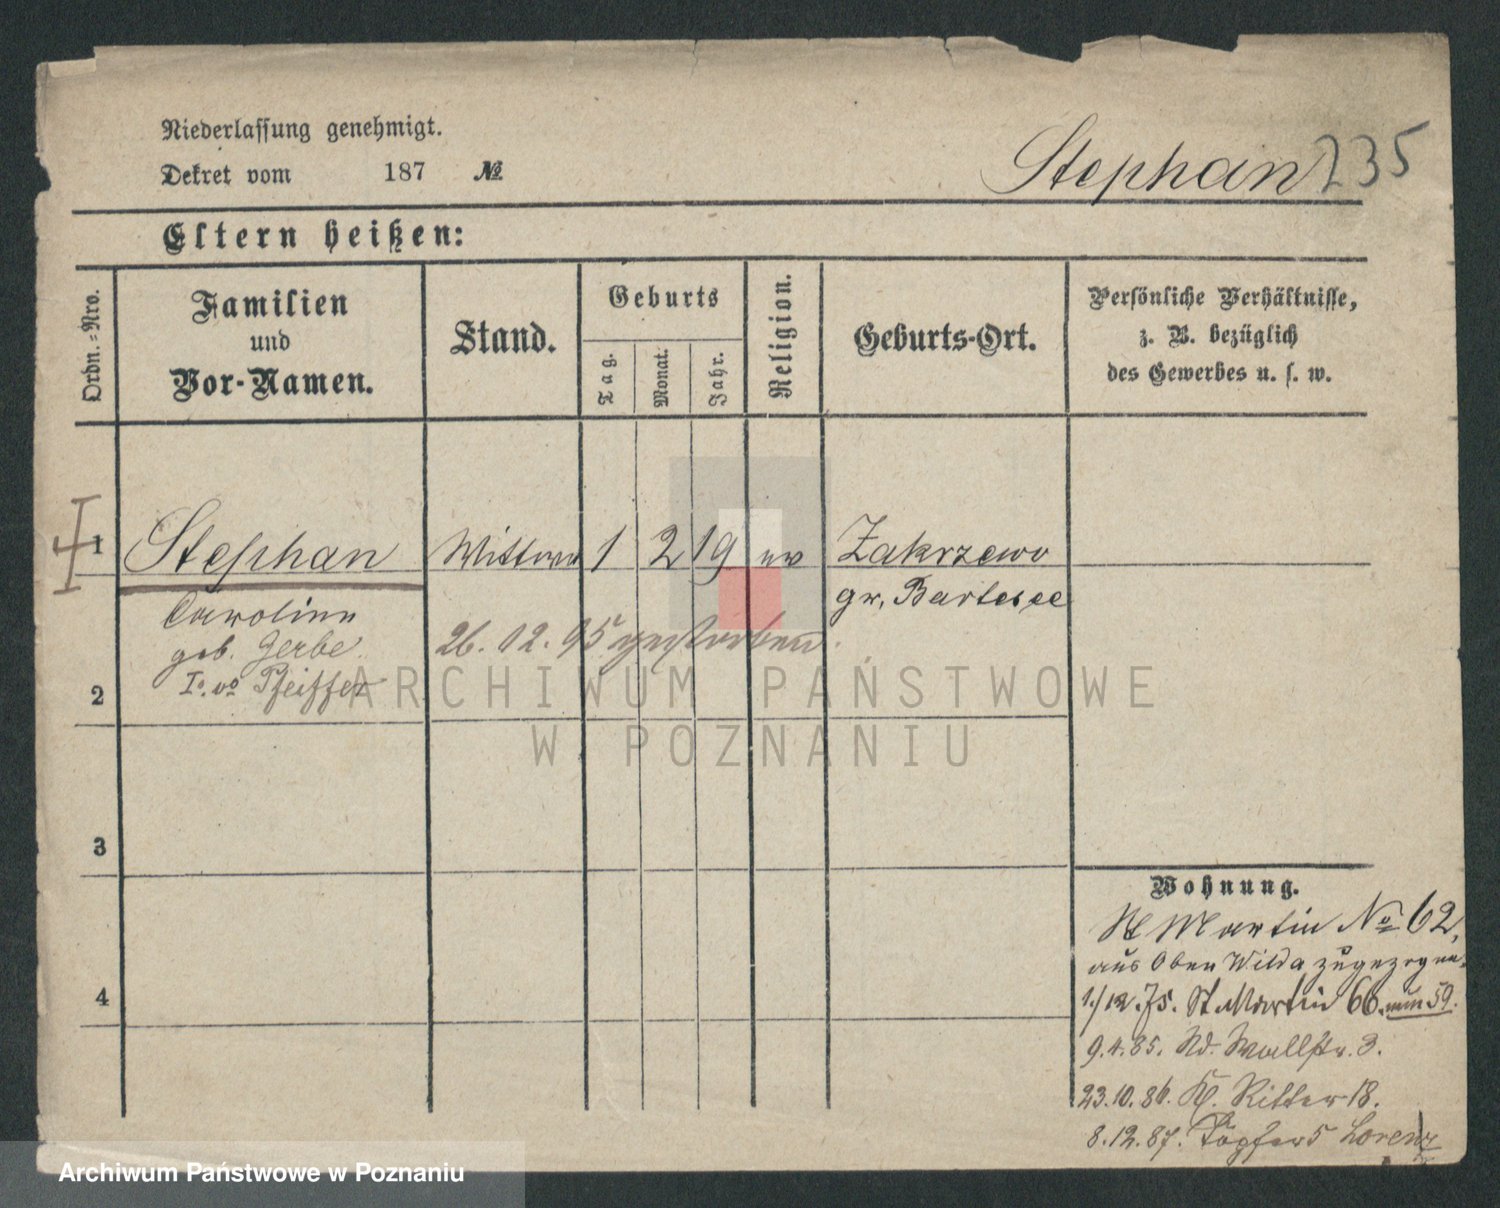 Niederlassung genehmigt.
Dekret vom 187 №
Stephan 235
Eltern heißen:
Ordn.-Nro.
Familien
und
Vor-Namen.
Stand.
Geburts
Tag.
Monat.
Jahr.
Religion.
Geburts-Ort.
Persönliche Verhältnisse,
z. B. bezüglich
des Gewerbes u. s. w.
1 Stephan Wittwe 1 2 19 ev Zakrzewo
Caroline
geb. Gerbe
I. vo Pfeiffer
gr. Bartelsee
26. 12. 95 gestorben.
2
3
4
Wohnung.
St Martin No 62,
aus Ober Wilda zugezogen.
1./12. 75. St Martin 66. nun 59.
9.4.85. Wallstr. 3.
23.10.86. Kl. Ritter 18.
8.12.87. Töpfer 5 Lorenz
ARCHIWUM PAŃSTWOWE
W POZNANIU
Archiwum Państwowe w Poznaniu